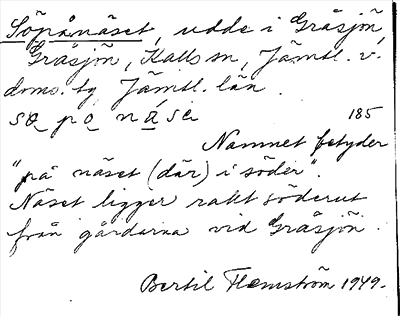 Söpånäset, udde i Gråsjön,
Gråsjön, Kalls sn, Jämtl. v.
doms. tg Jämtl. län.
sø̱ po̱ nä̱se 185
Namnet betyder
"på näset (där) i söder".
Näset ligger rakt söderut
från gårdarna vid Gråsjön.
Bertil Flemström 1949.